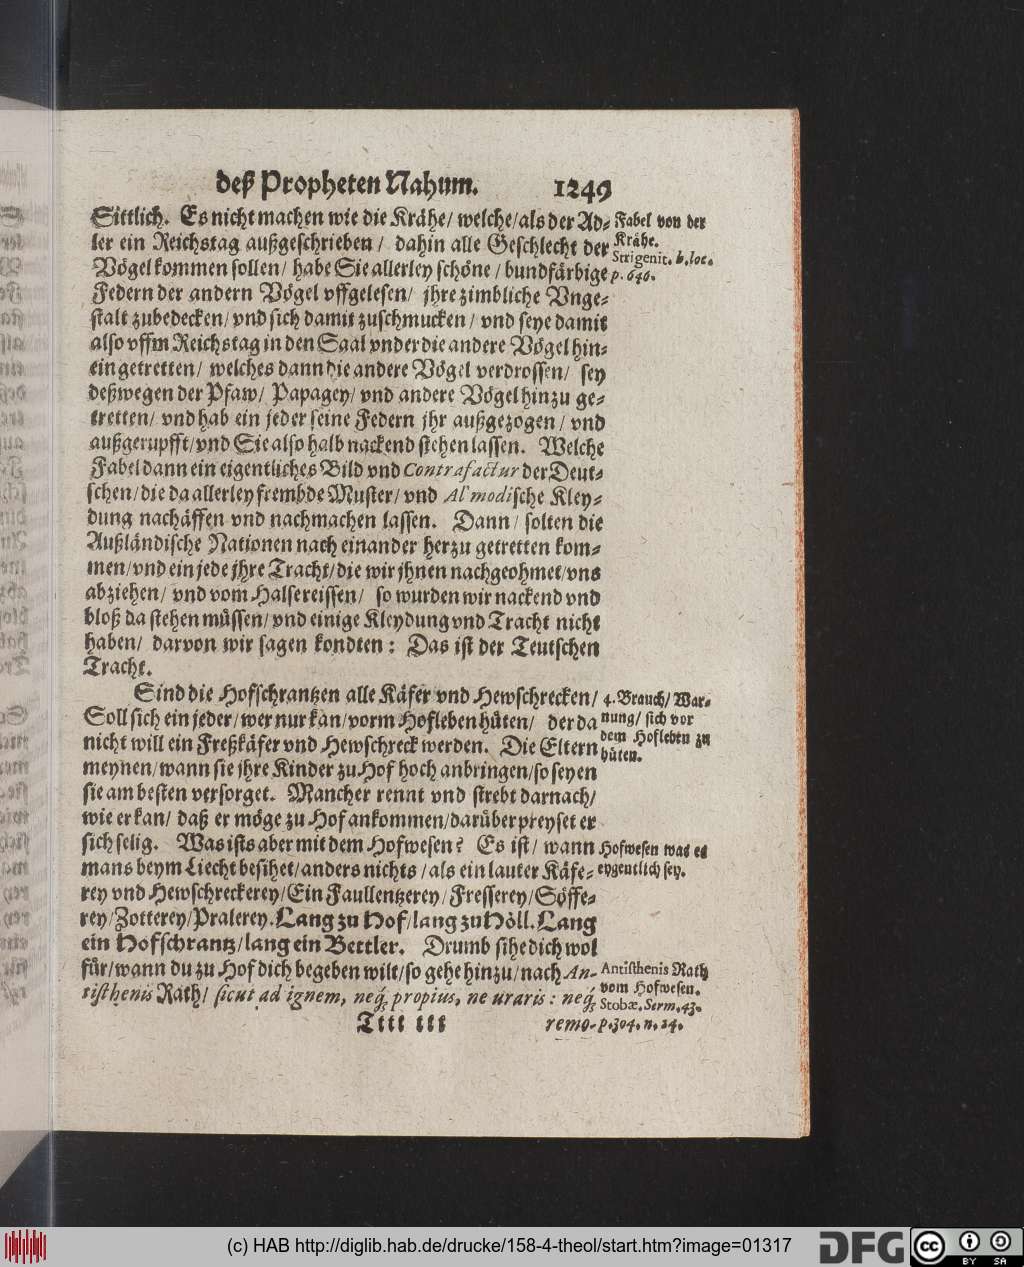 deß Propheten Nahum. 1249
Sittlich. Es nicht machen wie die Krähe/ welche/ als der Ad-
ler ein Reichstag außgeschrieben/ dahin alle Geschlecht der
Vögel kommen sollen/ habe Sie allerley schöne/ bundfärbige
Federn der andern Vögel vffgelesen/ jhre zimbliche Vnge-
stalt zubedecken/ vnd sich damit zuschmucken/ vnd seye damit
also vffm Reichstag in den Saal vnder die andere Vögel hin-
ein getretten/ welches dann die andere Vögel verdrossen/ sey
deßwegen der Pfaw/ Papagey/ vnd andere Vögel hinzu ge-
tretten/ vnd hab ein jeder seine Federn jhr außgezogen/ vnd
außgerupfft/ vnd Sie also halb nackend stehen lassen. Welche
Fabel dann ein eigentliches Bild vnd Contrafactur der Deut-
schen/ die da allerley frembde Muster/ vnd Al' modische Kley-
dung nachäffen vnd nachmachen lassen. Dann/ solten die
Außländische Nationen nach einander herzu getretten kom-
men/ vnd ein jede jhre Tracht/ die wir jhnen nachgeohmet/ vns
abziehen/ vnd vom Halse reissen/ so wurden wir nackend vnd
bloß da stehen müssen/ vnd einige Kleydung vnd Tracht nicht
haben/ darvon wir sagen kondten: Das ist der Teutschen
Tracht.
Sind die Hofschrantzen alle Käfer vnd Hewschrecken/
Soll sich ein jeder/ wer nur kan/ vorm Hofleben hüten/ der da
nicht will ein Freßkäfer vnd Hewschreck werden. Die Eltern
meynen/ wann sie jhre Kinder zu Hof hoch anbringen/ so seyen
sie am besten versorget. Mancher rennt vnd strebt darnach/
wie er kan/ daß er möge zu Hof ankommen/ darüber preyset er
sich selig. Was ists aber mit dem Hofwesen? Es ist/ wann
mans beym Liecht besihet/ anders nichts/ als ein lauter Käfe-
rey vnd Hewschreckerey/ Ein Faullentzerey/ Fresserey/ Söffe-
rey/ Zotterey/ Pralerey. Lang zu Hof/ lang zu Höll. Lang
ein Hofschrantz/ lang ein Bettler. Drumb sihe dich wol
für/ wann du zu Hof dich begeben wilt/ so gehe hinzu/ nach An-
tisthenis Rath/ sicut ad ignem, neq́; propius, ne uraris: neq́;
Tttt ttt remo-
Fabel von der
Krähe.
Strigenit. b. loc.
p. 646.
4. Brauch/ War-
nung/ sich vor
dem Hofleben zu
hüten.
Hofwesen was es
eygentlich sey.
Antisthenis Rath
vom Hofwesen.
Stobæ. Serm. 43.
p. 304. n. 24.
(c) HAB http://diglib.hab.de/drucke/158-4-theol/start.htm?image=01317
DFG
cc
BY SA